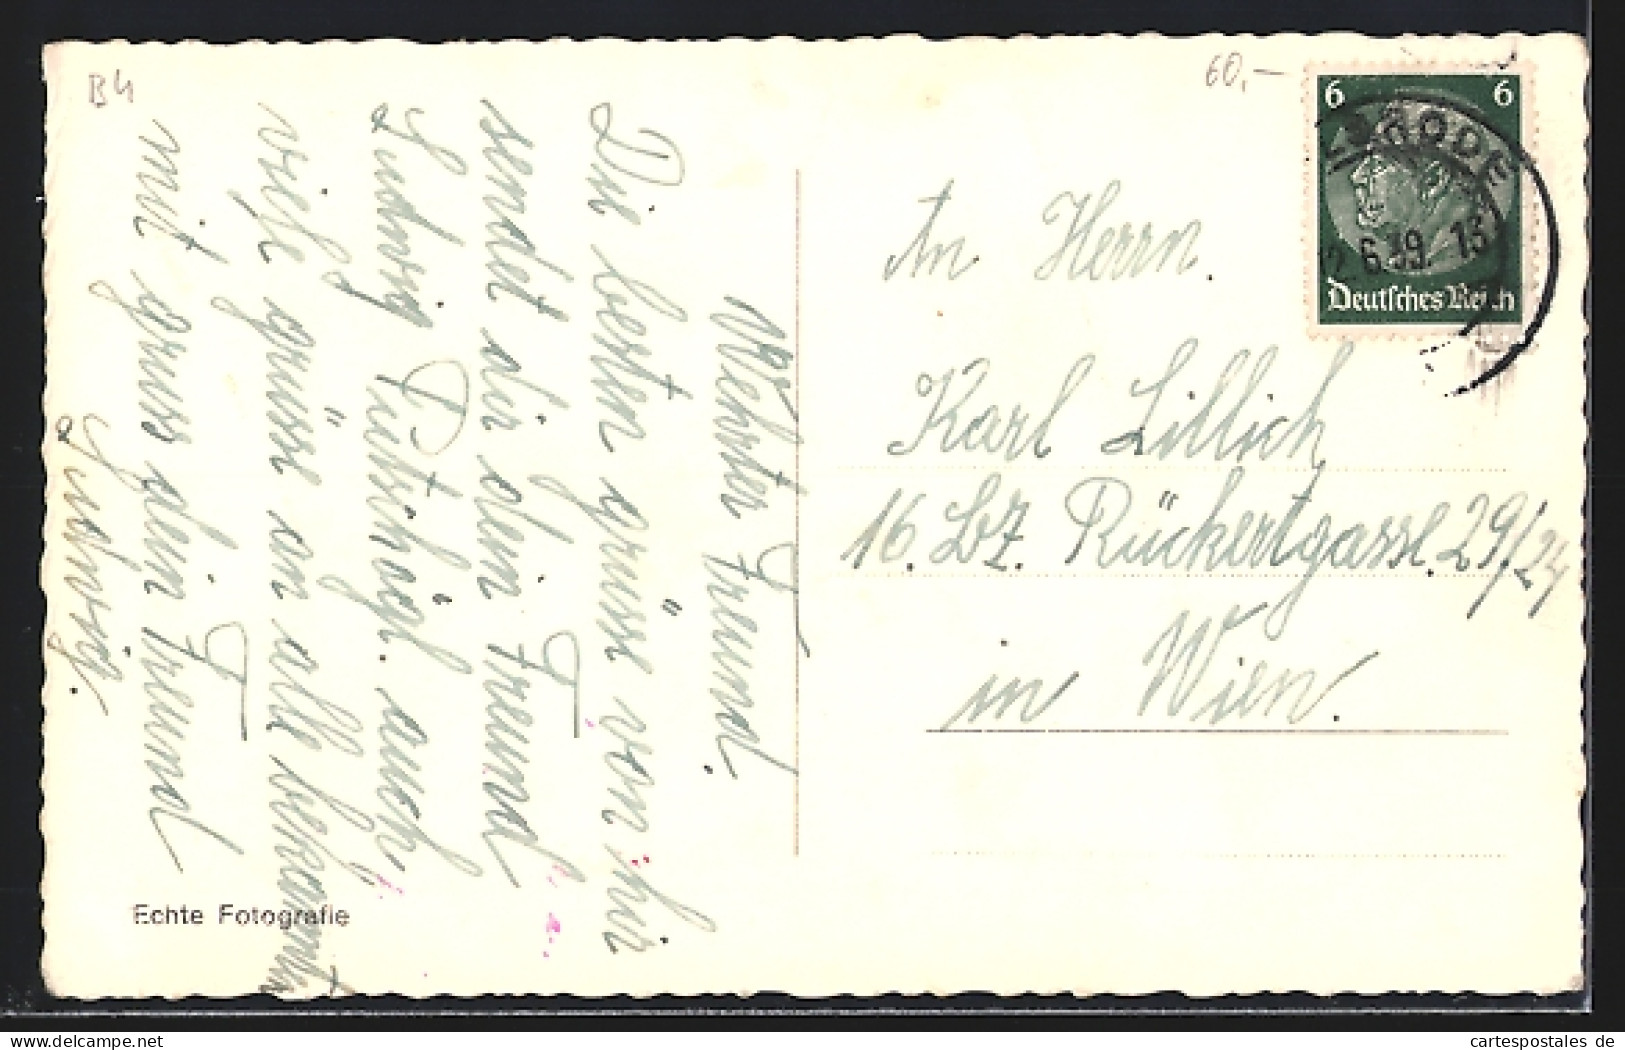 B4
60,–
6 6
RODE
2.6.39. 13
Deutsches Reich
Wehrter Freund.
Die besten grüsse von hir
sendet dir dein Freund
Ludwig auch
viele grüsse an alle bekannten
mit gruss dein Freund
Ludwig.
An Herrn.
Karl Lillich
16. Bz. Rückertgasse. 29/24
in Wien.
Echte Fotografie
cartespostales.de
www.delcampe.net